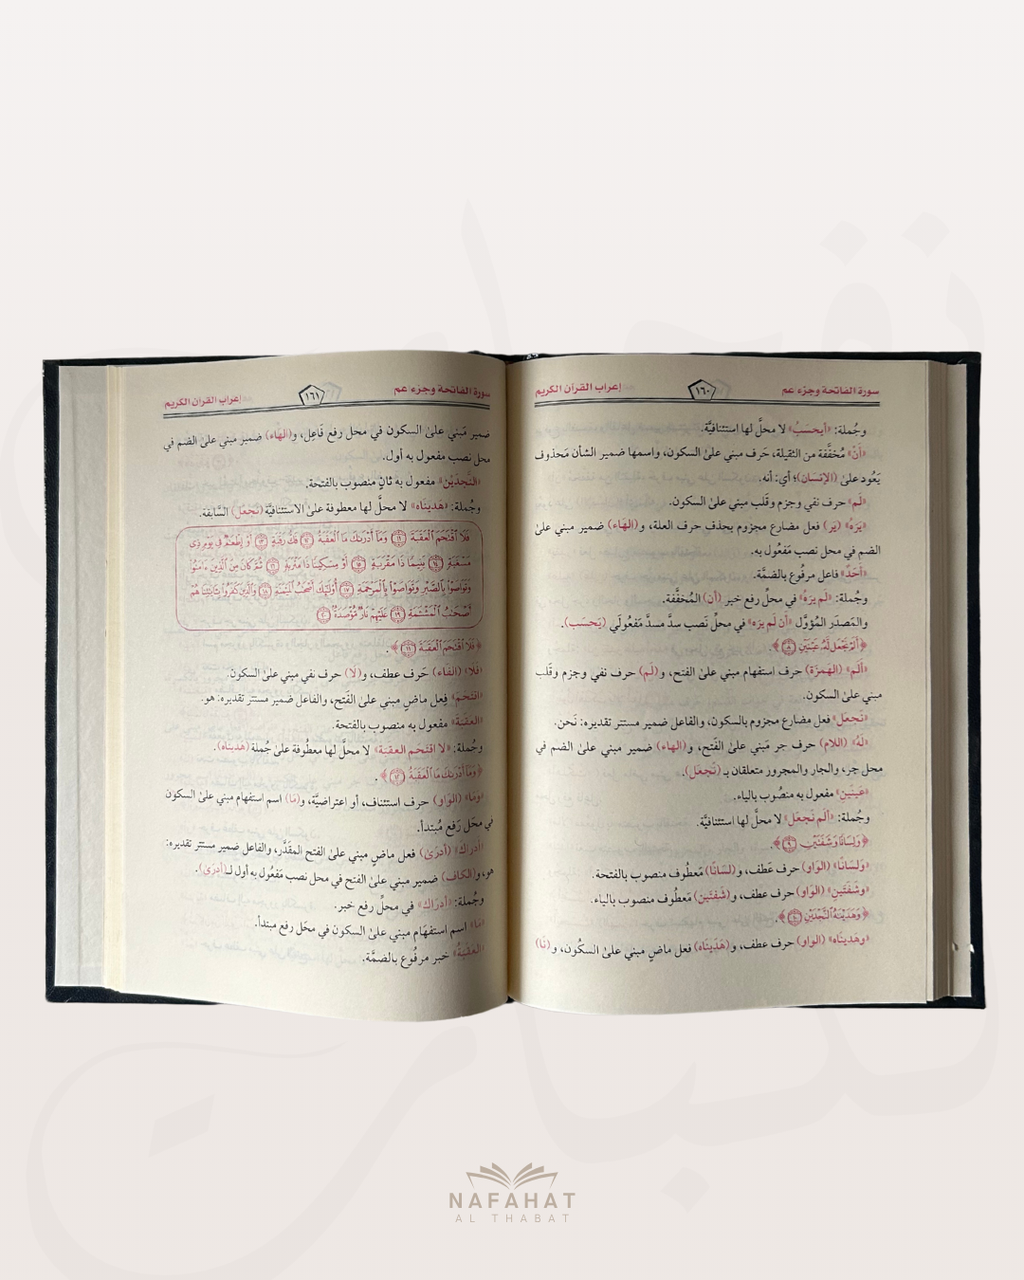 سورة الفاتحة وجزء عم
١٦٠
إعراب القرآن الكريم
وجُملة: «أيحسَبُ» لا محلَّ لها استئنافيَّة.
«أَنْ» مُخفَّفة من الثقيلة، حَرف مبني علىٰ السكون، واسمها ضمير الشأن مَحذوف
يَعُود علىٰ (الإنسَان)؛ أي: أنه.
«لَم» حرف نفي وجزم وقَلب مبني علىٰ السكون.
«يَرَهُ» (يَر) فعل مضارع مجزوم بحذف حرف العلة، و(الهَاء) ضمير مبني علىٰ
الضم في محل نصب مَفعول به.
«أَحَدٌ» فاعل مرفُوع بالضمَّة.
وجُملة: «لم يَرَهُ» في محلِّ رفع خبر (أن) المُخفَّفة.
والمَصدَر المُؤوَّل «أَن لَم يَرَه» في محلِّ نَصب سدَّ مسدَّ مَفعُولَي (يَحسَب).
﴿أَلَمْ نَجْعَل لَّهُۥ عَيْنَيْنِ ٨﴾.
«أَلَم» (الهَمزَة) حرف استفهام مبني علىٰ الفتح، و(لَم) حرف نفي وجزم وقَلب
مبني علىٰ السكون.
«نَجعَل» فعل مضارع مجزوم بالسكون، والفاعل ضمير مستتر تقديره: نَحن.
«لَهُ» (اللام) حرف جر مَبني علىٰ الفَتح، و(الهاء) ضمير مبني علىٰ الضم في
محل جر، والجار والمجرور متعلقان بـ (نَجعَل).
«عَينَينِ» مفعول به منصُوب بالياء.
وجُملة: «ألم نَجعَل» لا محلَّ لها استئنافيَّة.
﴿وَلِسَانًا وَشَفَتَيْنِ ٩﴾.
«وَلسَانًا» (الوَاو) حرف عَطف، و(لسَانًا) مَعطُوف منصوب بالفتحة.
«وشَفَتَين» (الوَاو) حرف عَطف، و(شَفَتَين) مَعطُوف منصوب بالياء.
﴿وَهَدَيْنَٰهُ ٱلنَّجْدَيْنِ ١٠﴾.
«وهَدينَاه» (الواو) حرف عَطف، و(هَدَيْنَاه) فعل ماضٍ مبني علىٰ السكُون، و(نَا)
سورة الفاتحة وجزء عم
١٦١
إعراب القرآن الكريم
ضمير مَبني علىٰ السكون في محل رفع فَاعِل، و(الهَاء) ضمير مبني علىٰ الضم في
محل نصب مفعول به أول.
«النَّجدَيْنِ» مفعول به ثانٍ منصوب بالفتحة.
وجُملة: «هَدينَاه» لا محلَّ لها معطوفة علىٰ الاستئنافيَّة (نَجعَل) السَّابقة.
فَلَا ٱقْتَحَمَ ٱلْعَقَبَةَ ١١ وَمَآ أَدْرَىٰكَ مَا ٱلْعَقَبَةُ ١٢ فَكُّ رَقَبَةٍ ١٣ أَوْ إِطْعَٰمٌ فِى يَوْمٍ ذِى
مَسْغَبَةٍ ١٤ يَتِيمًا ذَا مَقْرَبَةٍ ١٥ أَوْ مِسْكِينًا ذَا مَتْرَبَةٍ ١٦ ثُمَّ كَانَ مِنَ ٱلَّذِينَ ءَامَنُوا۟
وَتَوَاصَوْا۟ بِٱلصَّبْرِ وَتَوَاصَوْا۟ بِٱلْمَرْحَمَةِ ١٧ أُو۟لَٰٓئِكَ أَصْحَٰبُ ٱلْمَيْمَنَةِ ١٨ وَٱلَّذِينَ كَفَرُوا۟ بِـَٔايَٰتِنَا هُمْ
أَصْحَٰبُ ٱلْمَشْـَٔمَةِ ١٩ عَلَيْهِمْ نَارٌ مُّؤْصَدَةٌۢ ٢٠
﴿فَلَا ٱقْتَحَمَ ٱلْعَقَبَةَ ١١﴾.
«فلا» (الفَاء) حَرف عطف، و(لَا) حرف نفي مبني علىٰ السكون.
«اقتَحَم» فِعل ماضٍ مبني علىٰ الفَتح، والفاعل ضمير مستتر تقديره: هو.
«العَقَبَة» مفعول به منصوب بالفتحة.
وجُملة: «لا اقتَحَم العقبة» لا محلَّ لها معطُوفة علىٰ جُملة (هَدينَاه).
﴿وَمَآ أَدْرَىٰكَ مَا ٱلْعَقَبَةُ ١٢﴾.
«ومَا» (الوَاو) حرف استئناف، أو اعتراضيَّة، و(مَا) اسم استفهام مبني علىٰ السكون
في محَل رَفع مُبتدأ.
«أدراك» (أدرَىٰ) فعل ماضٍ مبني علىٰ الفتح المقَدَّر، والفاعل ضمير مستتر تقديره:
هو، و(الكاف) ضمير مبني علىٰ الفتح في محل نصب مَفعُول به أول لـ(أدرَىٰ).
وجُملة: «أدرَاك» في محلِّ رفع خبر.
«مَا» اسم استفهَام مبني علىٰ السكون في محل رفع مبتدأ.
«العقبَةُ» خبر مرفُوع بالضمَّة.
NAFAHAT
AL THABAT